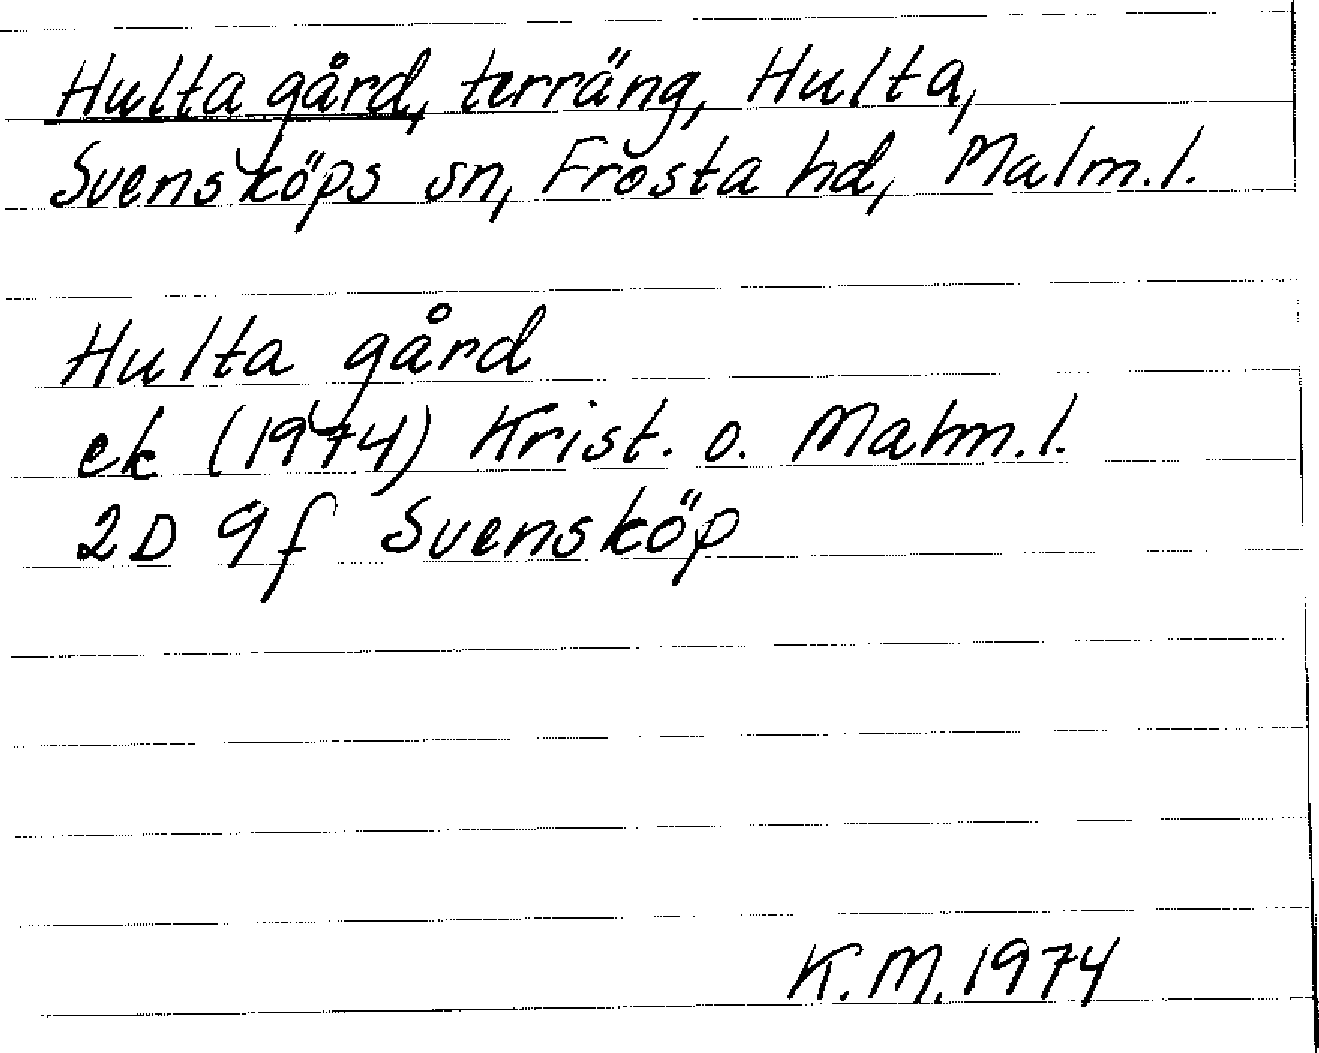 Hulta gård, terräng, Hulta,
Svensköps sn, Frosta hd, Malm.l.
Hulta gård
ek (1974) Krist. o. Malm.l.
2D 9f Svensköp
K.M. 1974